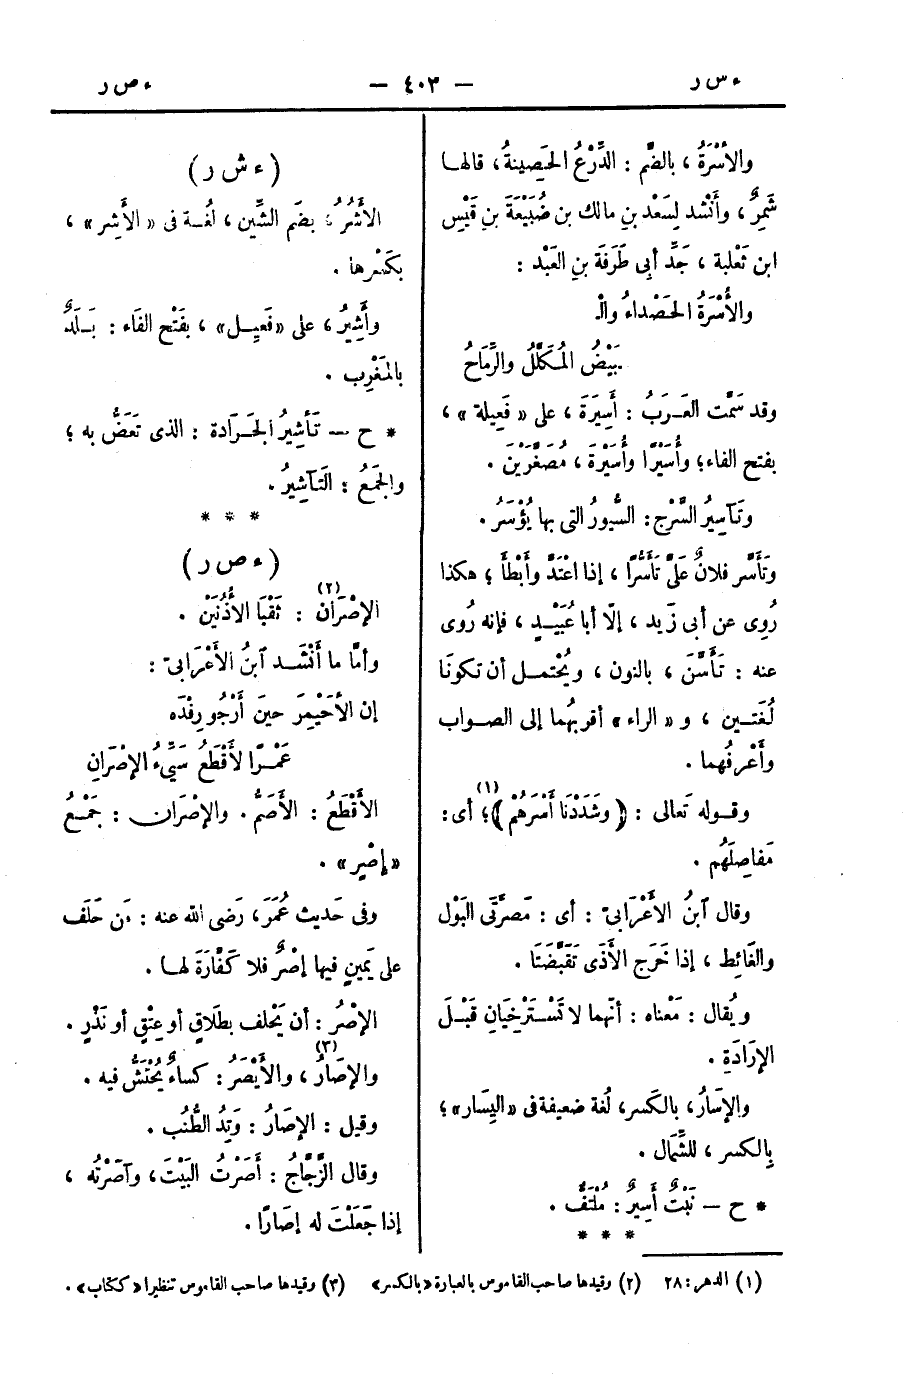 ء س ر
— ٤٠٣ —
ء ص ر
والأُسْرَةُ ، بالضَّم : الدِّرْعُ الحَصِينةُ ، قالها
شَمِرٌ ، وأَنْشد لِسَعْد بنِ مالك بن ضُبَيْعَةَ بنِ قَيْس
ابن ثَعْلبة ، جَدِّ أبى طَرَفَة بنِ العَبْد :
والأُسْرَةُ الحَصْداءُ والْـ
ـبَيْضُ المُكَلَّلُ والرِّمَاحُ
وقد سَمَّت العَرَبُ : أَسِيرَةَ ، على « فَعِيلة » ،
بفتح الفاء؛ وأُسَيْرًا وأُسَيْرَةَ ، مُصَغَّرَيْن .
وتَآسِيرُ السَّرْج: السُّيورُ التى بها يُؤْسَرُ .
وتَأَسَّر فلانٌ عَلَىَّ تَأَسُّرًا ، إذا اعْتَدَّ وأَبْطأَ ؛ هكذا
رُوِى عن أبى زَيد ، إلّا أبا عُبَيْـدٍ ، فإنه رُوى
عنه : تَأَسَّنَ ، بالنون ، ويُحْتمـل أن تكونَا
لُغَتَـيـن ، و « الراء » أقربُهُما إلى الصـواب
وأَعْرفُهما .
وقـوله تَعالى : ﴿ وشَدَدْنَا أَسْرَهُمْ ﴾(١)؛ أى :
مَفاصِلَهُم .
وقال آبنُ الأَعْرَابىّ : أى : مَصَرَّتَى البَوْل
والغَائِط ، إذا خَرَج الأَذَى تَقَبَّضَتَا .
ويُقال : مَعْناه : أنّهما لا تَسْـتَرْخِيَانِ قَبْـلَ
الإرَادَةِ .
والإسَارُ ، بالكَسر، لُغة ضعيفة فى « اليِسَار » ؛
بِالكسر ، للشِّمَال .
* ح — نَبْتٌ أَسِيرٌ : مُلْتَفٌّ .
* * *
( ء ش ر )
الأَشُرُ ، بضَم الشِّين ، لُغـة فى « الأَشِر » ،
بكَسْرها .
وأَشِيرُ ، على «فَعِيـل» ، بفَتْح الفَاء : بَـلَدٌ
بالمَغْرِب .
* ح — تَأْشِيرُ الجَـرَادة : الذى تَعَضُّ به ؛
والجَمَعُ : التَآشِيرُ .
* * *
( ء ص ر )
الإصْرَانِ(٢) : ثَقْبَا الأُذُنَيْن .
وأمَّا ما أَنْشَـد آبنُ الأَعْرَابىّ :
إن الأُحَيْمِرَ حينَ أَرْجُو رِفْدَه
عَمْـرًا لأَقْطَعُ سَيِّءُ الإصْرَانِ
الأَقْطَعُ : الأَصَمُّ . والإصْرَان : جَمْـعُ
«إصْرٍ» .
وفى حَديث عُمَرَ ، رَضى الله عنه : مَن حَلَف
على يَمِينٍ فيها إصْرٌ فلا كَفَّارَةَ لهـا .
الإصْرُ : أن يَحْلف بطَلَاقٍ أو عِتْقٍ أو نَذْرٍ .
والإصَارُ(٣) ، والأَيْصَرُ : كساءٌ يُحْتَشُّ فيه .
وقيل : الإصَارُ : وَتِدُ الطُّنُب .
وقال الزَّجَّاجُ : أَصَرْتُ البَيْتَ ، وآصَرْتُه ،
إذا جَعَلْتَ له إصَارًا .
(١) الدهر : ٢٨ (٢) وقيدها صاحب القاموس بالعبارة «بالكسر» (٣) وقيدها صاحب القاموس تنظيرا «ككتاب» .